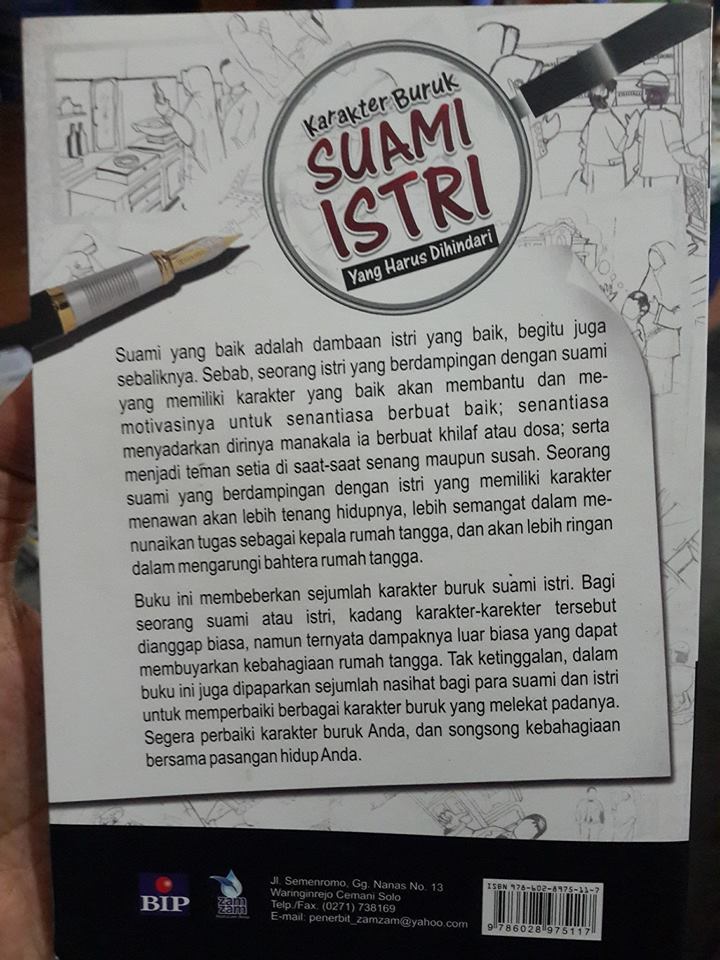 Karakter Buruk
SUAMI
ISTRI
Yang Harus Dihindari
Suami yang baik adalah dambaan istri yang baik, begitu juga
sebaliknya. Sebab, seorang istri yang berdampingan dengan suami
yang memiliki karakter yang baik akan membantu dan me-
motivasinya untuk senantiasa berbuat baik; senantiasa
menyadarkan dirinya manakala ia berbuat khilaf atau dosa; serta
menjadi teman setia di saat-saat senang maupun susah. Seorang
suami yang berdampingan dengan istri yang memiliki karakter
menawan akan lebih tenang hidupnya, lebih semangat dalam me-
nunaikan tugas sebagai kepala rumah tangga, dan akan lebih ringan
dalam mengarungi bahtera rumah tangga.
Buku ini membeberkan sejumlah karakter buruk suami istri. Bagi
seorang suami atau istri, kadang karakter-karekter tersebut
dianggap biasa, namun ternyata dampaknya luar biasa yang dapat
membuyarkan kebahagiaan rumah tangga. Tak ketinggalan, dalam
buku ini juga dipaparkan sejumlah nasihat bagi para suami dan istri
untuk memperbaiki berbagai karakter buruk yang melekat padanya.
Segera perbaiki karakter buruk Anda, dan songsong kebahagiaan
bersama pasangan hidup Anda.
BIP
zam
zam
Jl. Semenromo, Gg. Nanas No. 13
Waringinrejo Cemani Solo
Telp./Fax. (0271) 738169
E-mail: penerbit_zamzam@yahoo.com
ISBN 978-602-8975-11-7
9 786028 975117